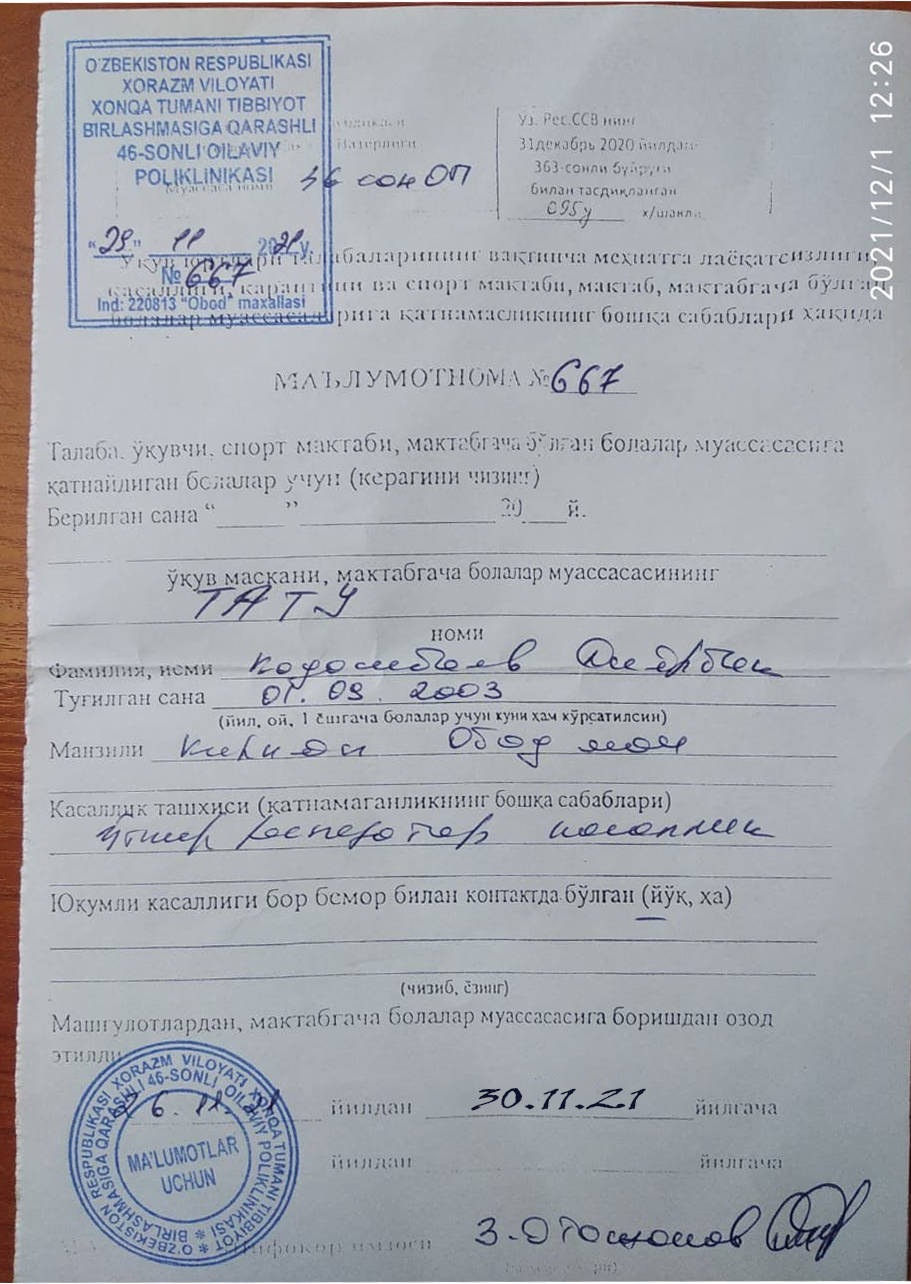 O'ZBEKISTON RESPUBLIKASI
XORAZM VILOYATI
XONQA TUMANI TIBBIYOT
BIRLASHMASIGA QARASHLI
46-SONLI OILAVIY
POLIKLINIKASI
"29" 11 2021 y.
№ 667
Ind: 220813 "Obod" maxallasi
Муассаса номи
46 сон ОП
Уз. Рес.ССВ нинг
31декабрь 2020 йилдаги
363-сонли буйруғи
билан тасдиқланган
095у х/шакли
2021/12/1 12:26
Ўқув юртлари талабаларининг вақтинча меҳнатга лаёқатсизлиги,
касаллиги, карантини ва спорт мактаби, мактаб, мактабгача бўлган
болалар муассасаларига қатнамасликнинг бошқа сабаблари ҳақида
МАЪЛУМОТНОМА № 667
Талаба, ўқувчи, спорт мактаби, мактабгача бўлган болалар муассасасига
қатнайдиган болалар учун (керагини чизинг)
Берилган сана “_____” ______________ 20___й.
ўқув маскани, мактабгача болалар муассасасининг
ТАТУ
номи
Фамилия, исми
Туғилган сана 01.09.2003
(йил, ой, 1 ёшгача болалар учун куни ҳам кўрсатилсин)
Манзили Обод
Касаллик ташхиси (қатнамаганликнинг бошқа сабаблари)
Ўткир респератор касаллик
Юқумли касаллиги бор бемор билан контактда бўлган (йўқ, ха)
(чизиб, ёзинг)
Машғулотлардан, мактабгача болалар муассасасига боришдан озод
этилди
26.11.21 йилдан 30.11.21 йилгача
йилдан йилгача
O'ZBEKISTON RESPUBLIKASI XORAZM VILOYATI XONQA TUMANI TIBBIYOT BIRLASHMASIGA QARASHLI 46-SONLI OILAVIY POLIKLINIKASI
MA'LUMOTLAR
UCHUN
имзоси З.Отожонов